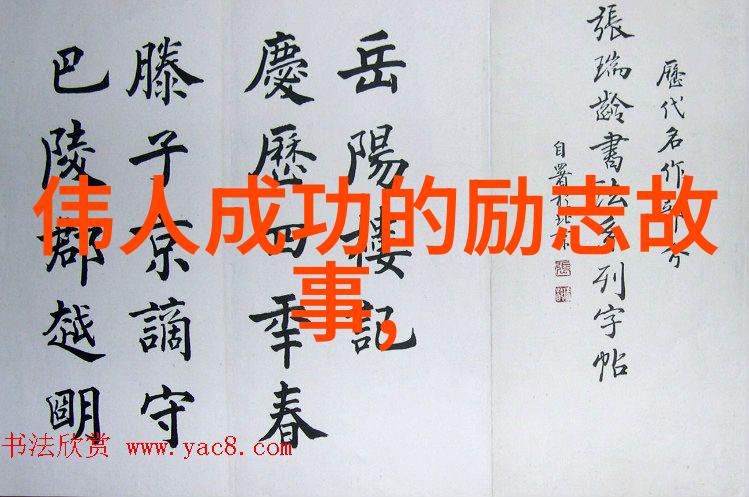 歷代名作部分
張瑞齡書法系列字帖
自署於北京
岳陽樓記
慶歷四年春
滕子京謫守
巴陵郡越明
伟人成功的励志故
事,
书法欣赏 www.yac8.com